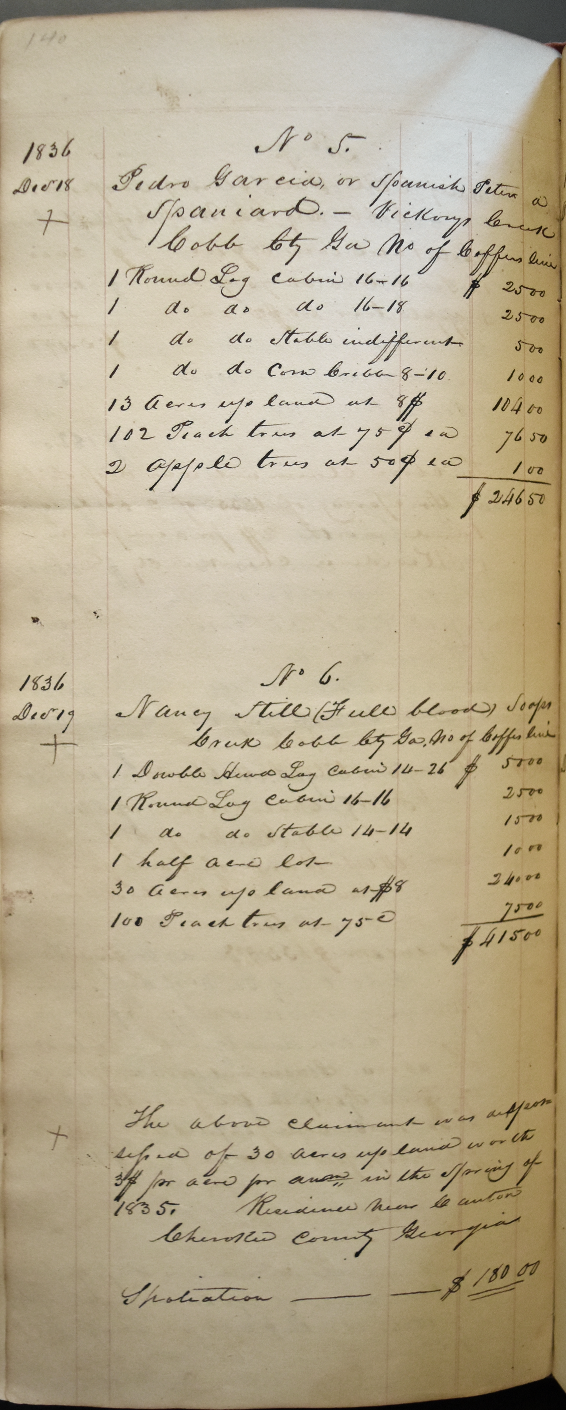 140
No 5.
1836
Decr 18 Pedro Garcia, or Spanish Peter a
Spaniard. – Vickorys Creek
Cobb Cty Ga No of Coffees line
1 Round Log cabin 16–16 $ 25 00
1 do do do 16–18 25 00
1 do do Stable indifferent 5 00
1 do do Corn Cribb 8–10 10 00
13 Acres up land at 8$ 104 00
102 Peach trees at 75¢ ea 76 50
2 Apple trees at 50¢ ea 1 00
$ 246 50
No 6.
1836
Decr 19 Nancy Still (Full blood) Soaps
Creek Cobb Cty Ga, No of Coffees line
1 Dowble Hewd Log Cabin 14–26 $ 50 00
1 Round Log cabin 16–16 25 00
1 do do Stable 14–14 15 00
1 half acre lot 10 00
30 Acres up land at $8 240 00
100 Peach trees at 75c 75 00
$ 415 00
The above claimant was dispos
sessed of 30 acres up land worth
3$ pr acre pr anm in the Spring of
1835. Residence near Canton
Cherokee County Georgia
Spoliation — — $ 180 00